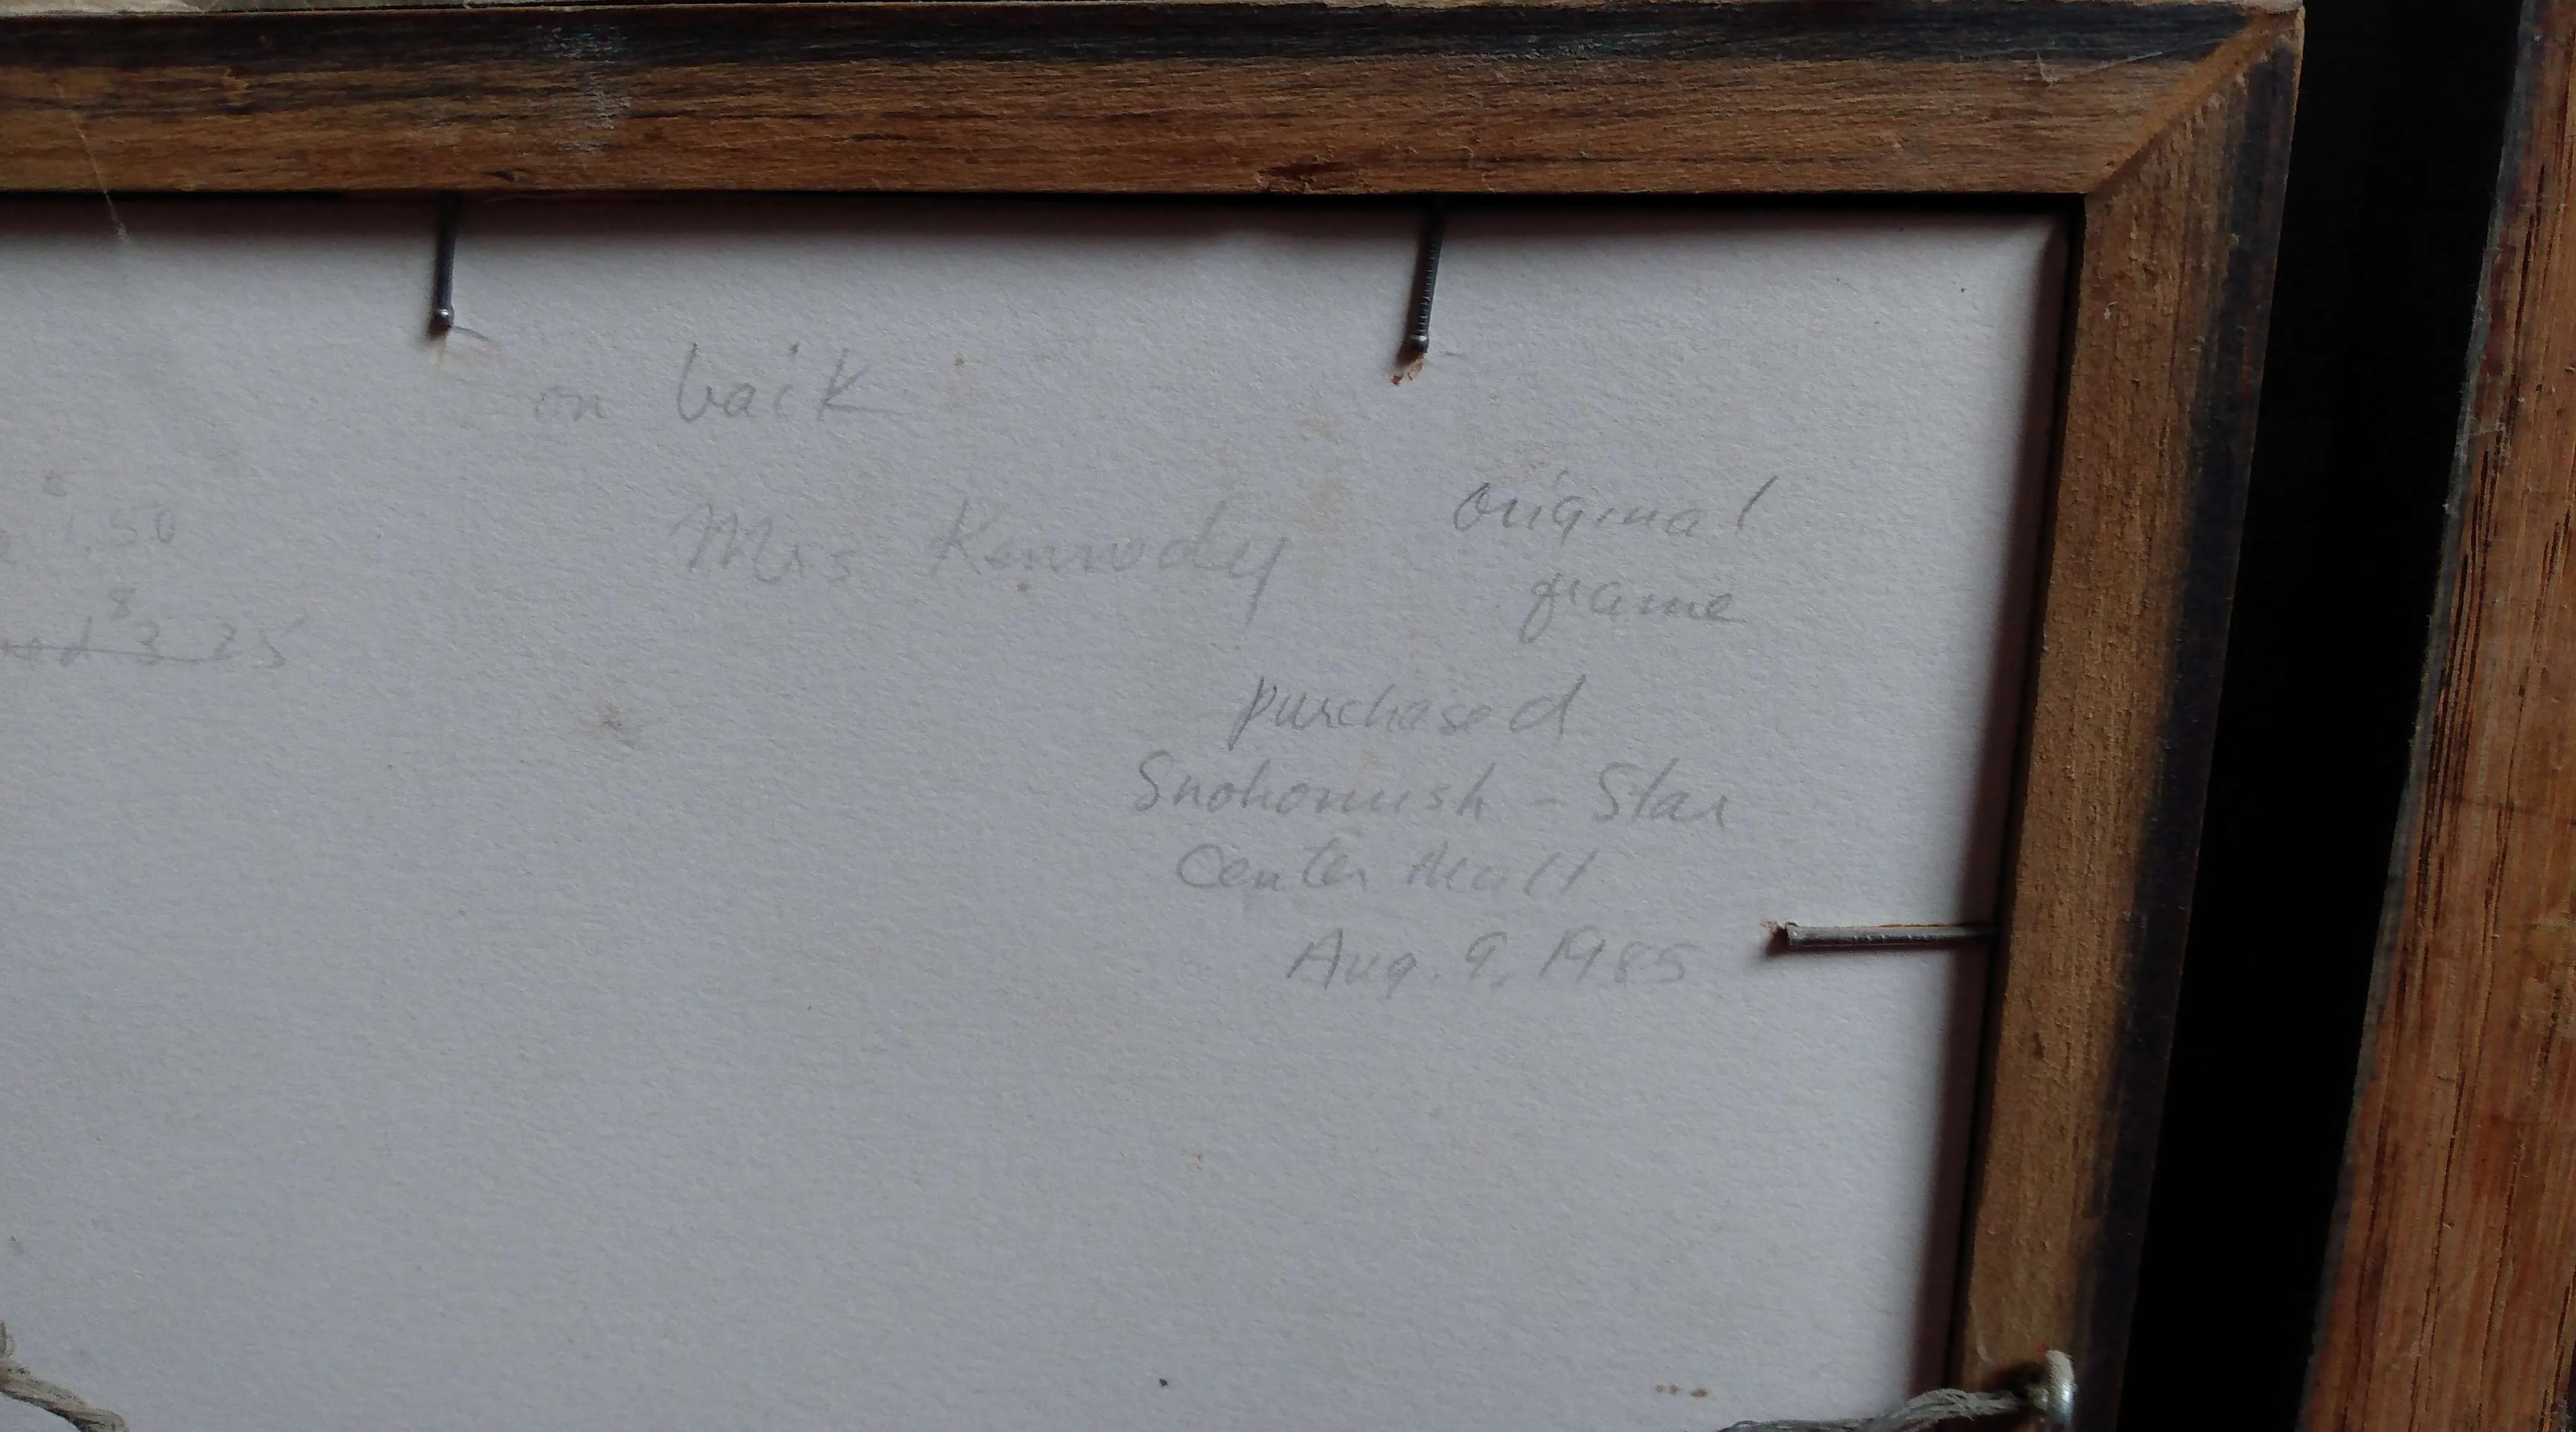 on back
Mrs Kennedy
original
frame
1.50
8
3 25
purchased
Snohomish - Star
Center Mall
Aug. 9, 1985